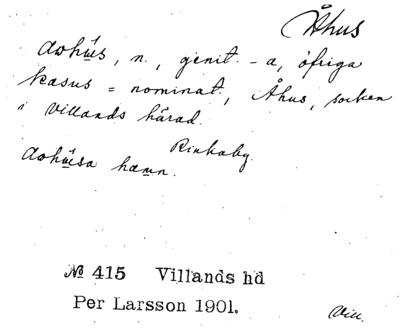 Åhus
aohu̱s, n., genit. -a, öfriga
kasus = nominat., Åhus, socken
i Villands härad.
Rinkaby.
aohu̱sa hamn.
№ 415 Villands hd
Per Larsson 1901.
Vill.